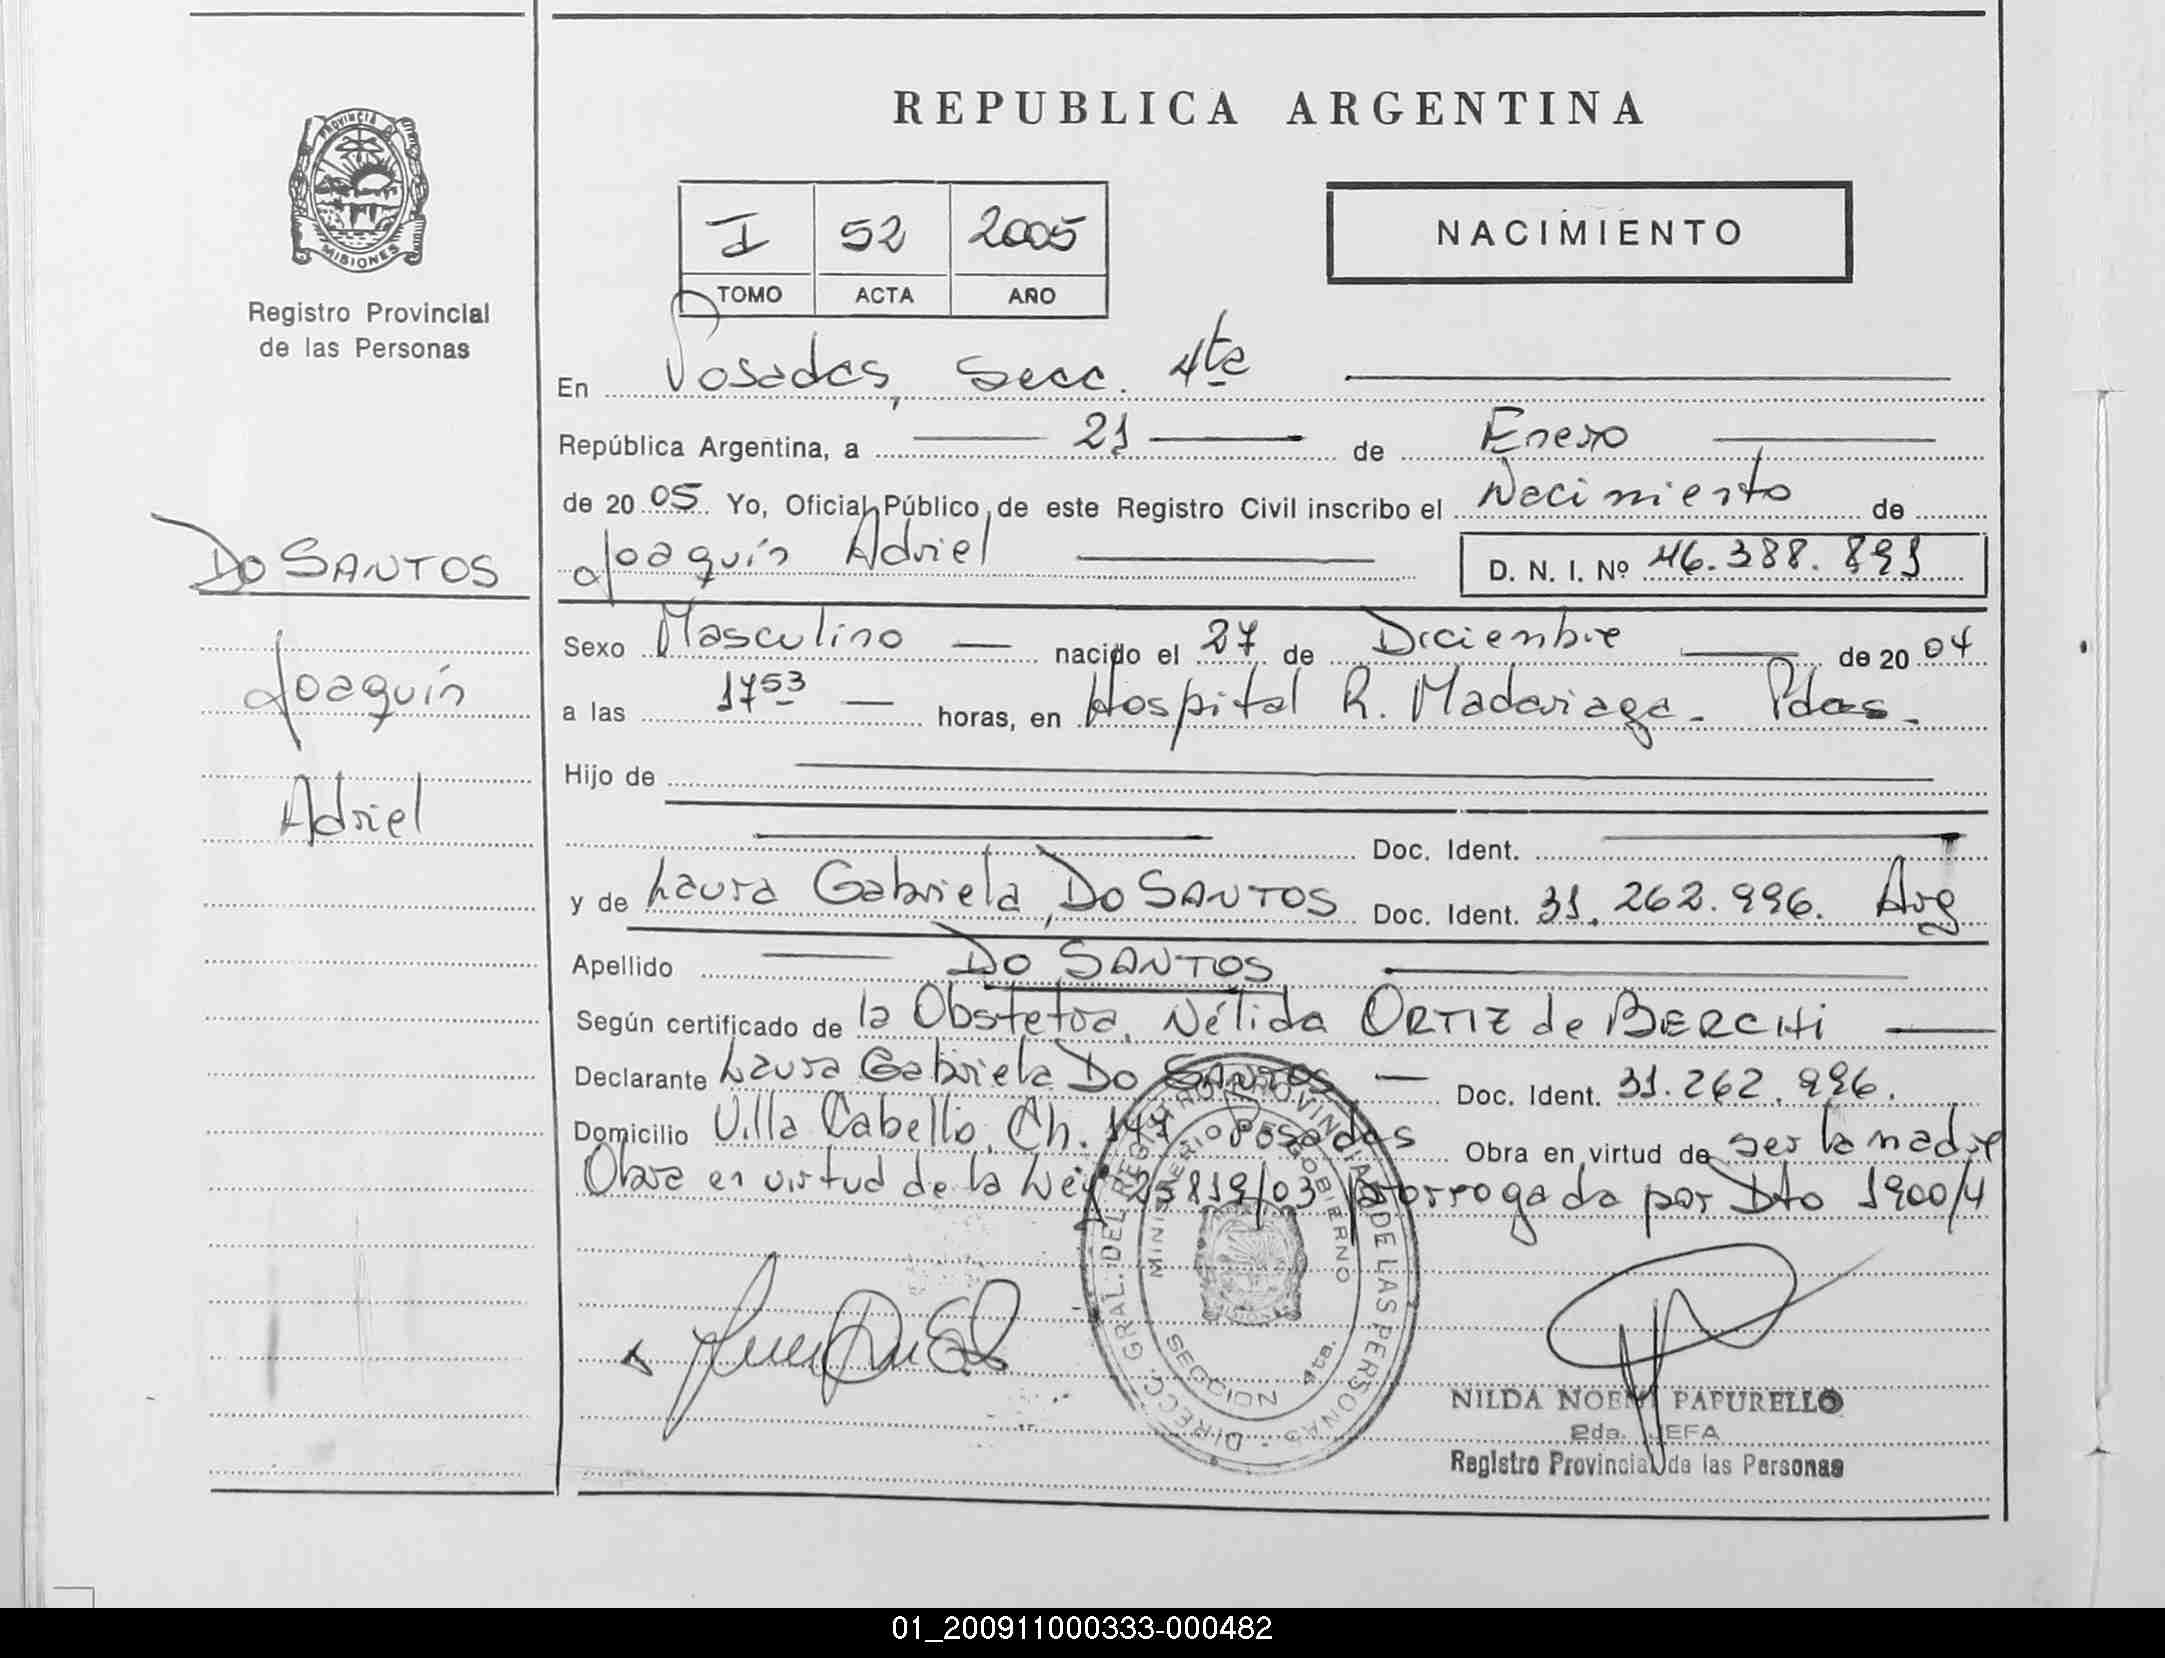 REPUBLICA ARGENTINA
PROVINCIA DE MISIONES
Registro Provincial
de las Personas
I 52 2005
TOMO ACTA AÑO
NACIMIENTO
En Posadas, Secc. 4ta
República Argentina, a 21 de Enero
de 20 05 Yo, Oficial Público de este Registro Civil inscribo el Nacimiento de
Joaquín Adriel D. N. I. Nº 46.388.891
DO SANTOS
Joaquín
Adriel
Sexo Masculino nacido el 27 de Diciembre de 20 04
a las 17 53 horas, en Hospital R. Madariaga - Pdas.
Hijo de
Doc. Ident.
y de Laura Gabriela, DO SANTOS Doc. Ident. 31.262.996. Arg
Apellido DO SANTOS
Según certificado de la Obstetra, Nélida ORTIZ de BERCHI
Declarante Laura Gabriela DO SANTOS Doc. Ident. 31.262.996.
Domicilio Villa Cabello, Ch. 147 Posadas Obra en virtud de ser la madre
Obra en virtud de la Ley 25819/03 Prorrogada por Dto 1900/4
DIRECC. GRAL. DEL REGISTRO PROVINCIAL DE LAS PERSONAS
MINISTERIO DE GOBIERNO
SECCION 4ta.
NILDA NOEMI PAPURELLO
2da. JEFA
Registro Provincial de las Personas
01_200911000333-000482